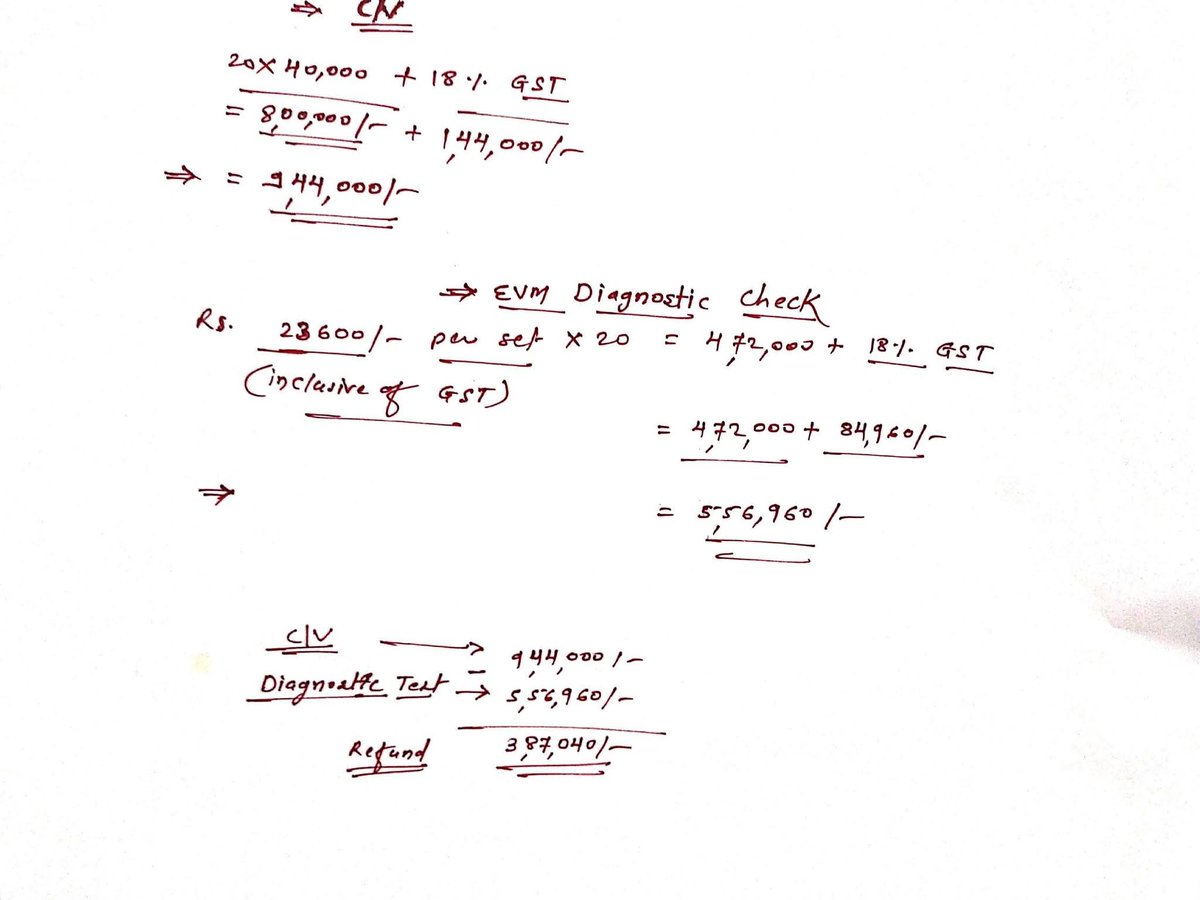 ⇒ C/V
20 × 40,000 + 18 % GST
= 8,00,000/- + 1,44,000/-
⇒ = 9,44,000/-
⇒ EVM Diagnostic Check
Rs. 23600/- per set × 20 = 4,72,000 + 18% GST
(inclusive of GST)
= 4,72,000 + 84,960/-
⇒
= 5,56,960/-
C/V → 9,44,000/-
Diagnostic Test → - 5,56,960/-
Refund 3,87,040/-